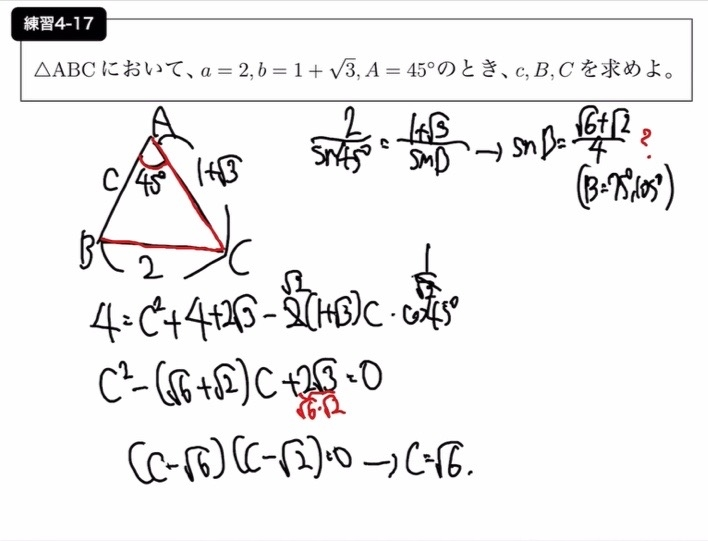 練習4-17
△ABC において、a = 2, b = 1 + √3, A = 45°のとき、c, B, C を求めよ。
A
C 45° 1+√3
B 2 C
2/sin45° = 1+√3/sinB → sinB = √6+√2/4 ?
(B=75°,105°)
4 = C² + 4+2√3 - 2(1+√3)C · cos45°
√2
1/√2
C² - (√6+√2)C + 2√3 = 0
√6·√2
(C-√6)(C-√2)=0 → C=√6.